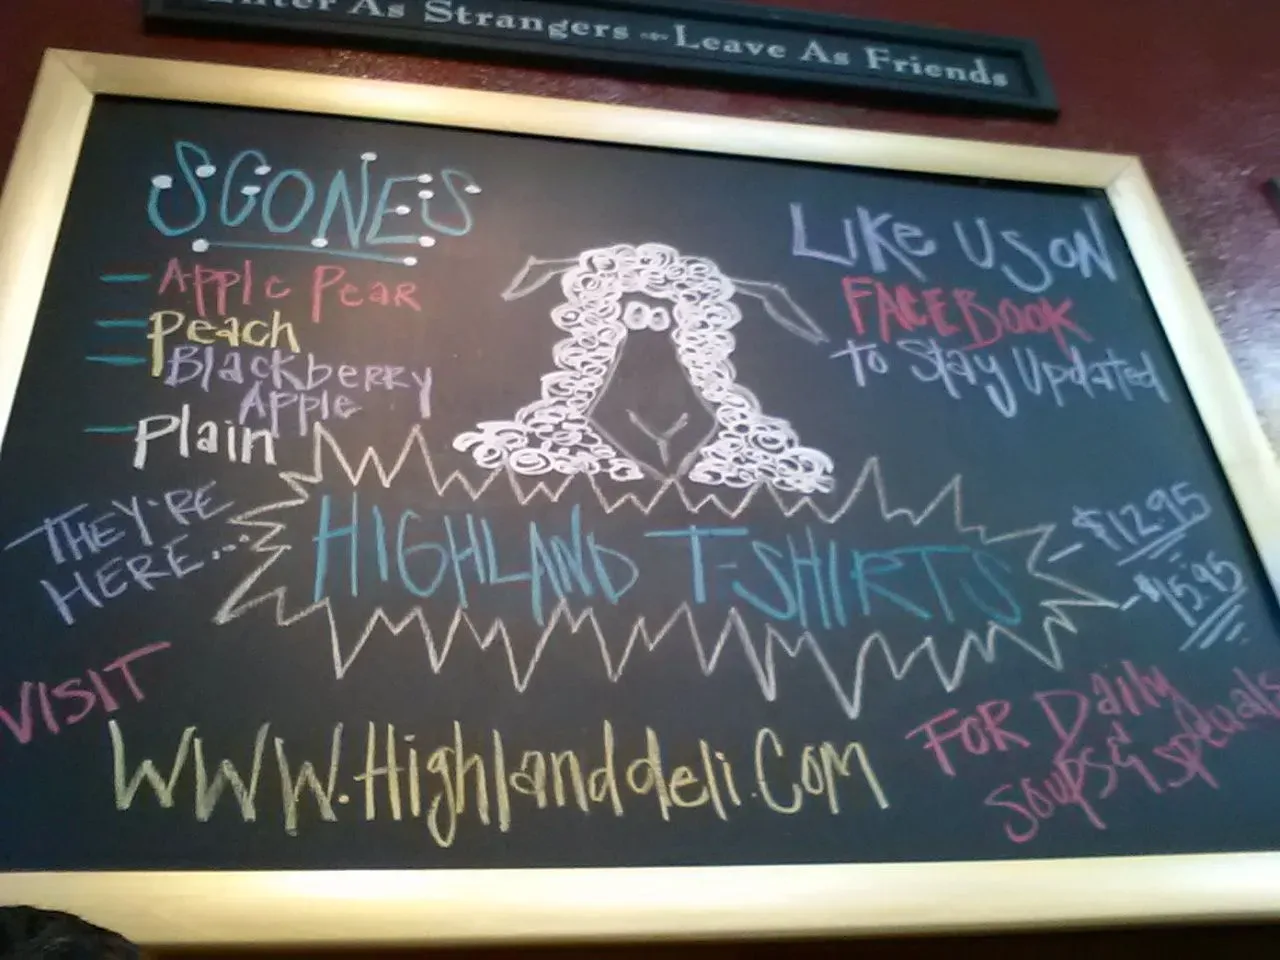 Enter As Strangers Leave As Friends
SCONES
- Apple Pear
- Peach
- Blackberry
Apple
- Plain
LIKE US ON
FACEBOOK
to Stay Updated
THEY'RE
HERE...
HIGHLAND T-SHIRTS
- $12.95
- $15.95
VISIT
WWW.Highlanddeli.Com
FOR Daily
Soups & Specials